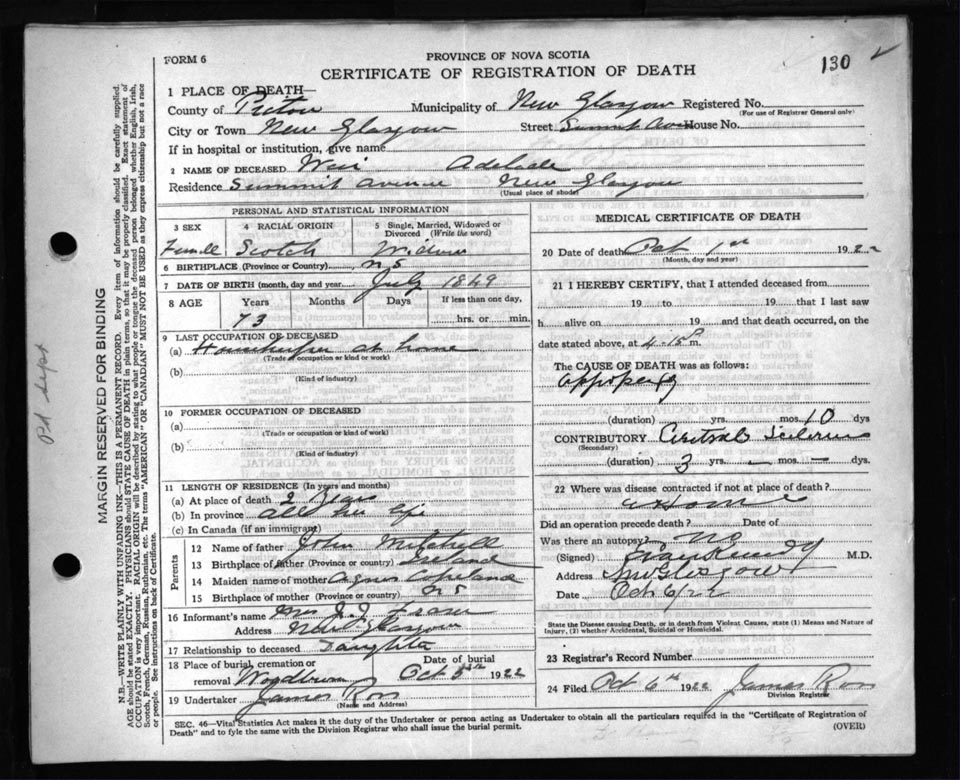 FORM 6
PROVINCE OF NOVA SCOTIA
CERTIFICATE OF REGISTRATION OF DEATH
130
1 PLACE OF DEATH—
County of Pictou Municipality of New Glasgow Registered No.
(For use of Registrar General only)
City or Town New Glasgow Street Summit Ave House No.
If in hospital or institution, give name
2 NAME OF DECEASED Weir Adelade
Residence Summit Avenue New Glasgow
(Usual place of abode)
PERSONAL AND STATISTICAL INFORMATION
3 SEX 4 RACIAL ORIGIN 5 Single, Married, Widowed or Divorced (Write the word)
Female Scotch Widow
6 BIRTHPLACE (Province or Country) N S
7 DATE OF BIRTH (month, day and year) July 1849
8 AGE Years Months Days If less than one day,
73 hrs. or min.
9 LAST OCCUPATION OF DECEASED
(a) Housekeeper at home
(Trade, occupation or kind of work)
(b)
(Kind of industry)
10 FORMER OCCUPATION OF DECEASED
(a)
(Trade, occupation or kind of work)
(b)
(Kind of industry)
11 LENGTH OF RESIDENCE (In years and months)
(a) At place of death 2 Years
(b) In province all her life
(c) In Canada (if an immigrant)
Parents
12 Name of father John Mitchell
13 Birthplace of father (Province or country) Ireland
14 Maiden name of mother Agnes Copeland
15 Birthplace of mother (Province or country) N S
16 Informant's name Mrs J. J. Fraser
Address New Glasgow
17 Relationship to deceased Daughter
18 Place of burial, cremation or removal Date of burial
Woodburn Oct 3rd 1922
19 Undertaker James Ross
(Name and Address)
MEDICAL CERTIFICATE OF DEATH
20 Date of death Oct 1st 1922
(Month, day and year)
21 I HEREBY CERTIFY, that I attended deceased from
19 to 19 that I last saw
h alive on 19 and that death occurred, on
date stated above, at 4.15 P m.
The CAUSE OF DEATH was as follows:
Appoplexy
(duration) yrs. mos. 10 dys
CONTRIBUTORY
(Secondary)
(duration) 3 yrs. – mos. – dys.
22 Where was disease contracted if not at place of death?
Home
Did an operation precede death? Date of
Was there an autopsy? no
(Signed) Kennedy M.D.
Address New Glasgow
Date Oct 6/22
State the Disease causing Death, or in death from Violent Causes, state (1) Means and Nature of
Injury, (2) whether Accidental, Suicidal or Homicidal.
23 Registrar's Record Number
24 Filed Oct 6th 1922 James Ross
Division Registrar
SEC. 46—Vital Statistics Act makes it the duty of the Undertaker or person acting as Undertaker to obtain all the particulars required in the "Certificate of Registration of
Death" and to fyle the same with the Division Registrar who shall issue the burial permit. (OVER)
MARGIN RESERVED FOR BINDING
N.B.—WRITE PLAINLY WITH UNFADING INK—THIS IS A PERMANENT RECORD. Every item of information should be carefully supplied.
AGE should be stated EXACTLY. PHYSICIANS should STATE CAUSE OF DEATH in plain terms, so that it may be properly classified. Exact statement of
OCCUPATION is very important. RACIAL ORIGIN will be described by stating to what people or tongue the deceased person belonged whether English, Irish,
Scotch, French, German, Russian, Ruthenian, etc. The terms "AMERICAN" OR "CANADIAN" MUST NOT BE USED as they express citizenship but not a race
or people. See instructions on back of Certificate.